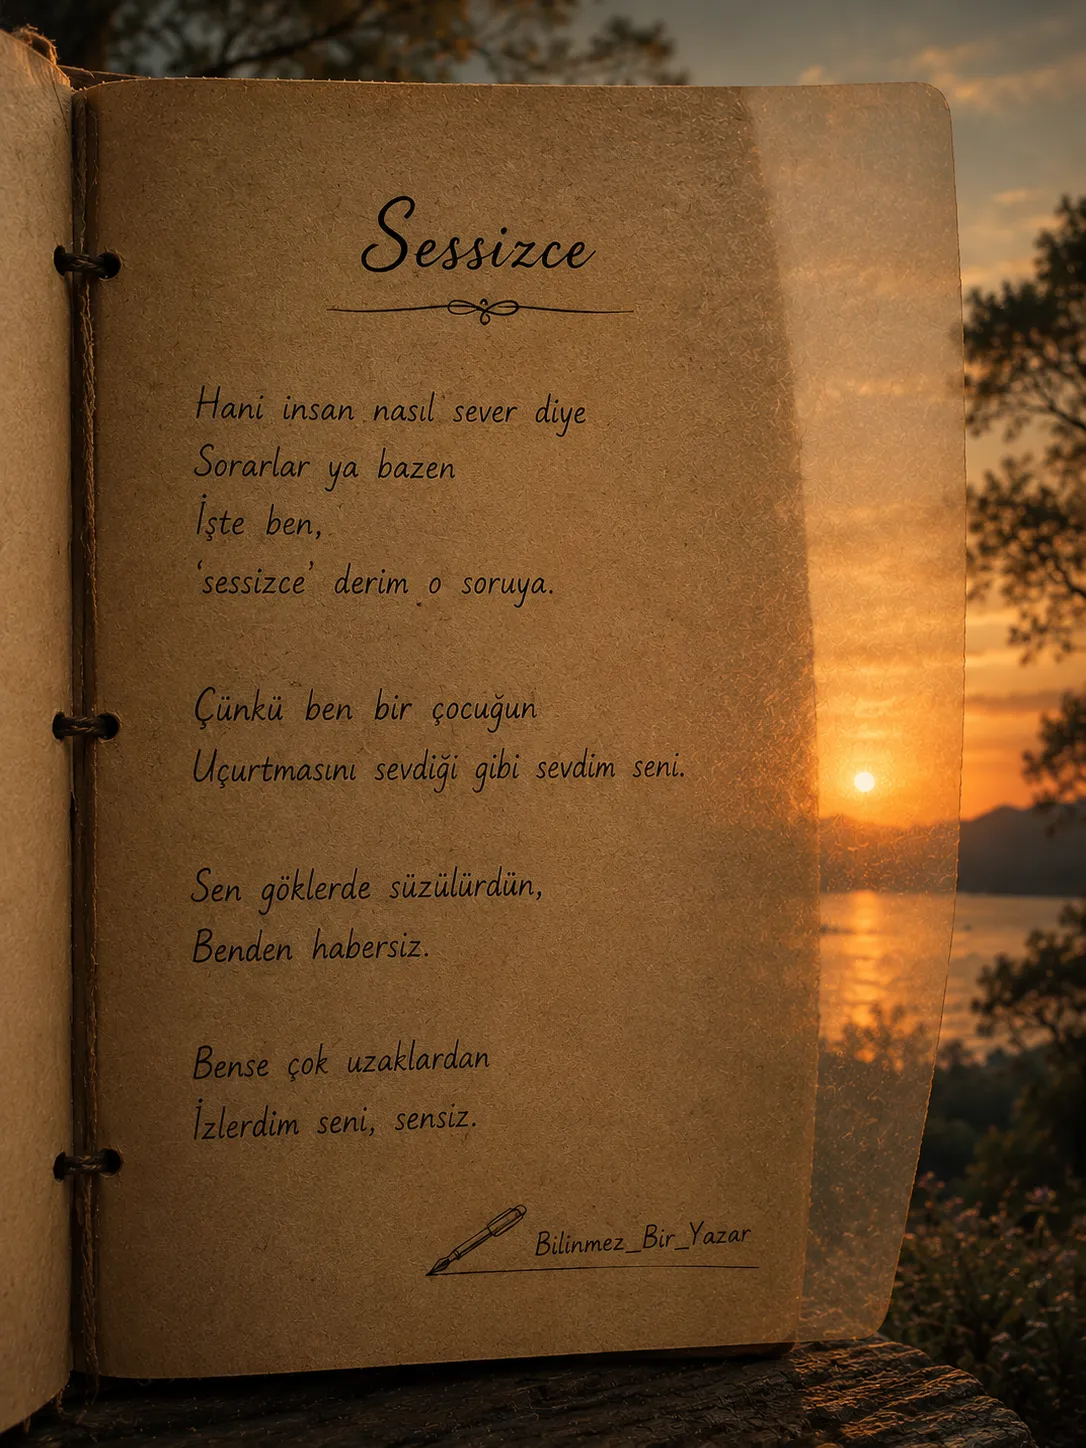 Sessizce
Hani insan nasıl sever diye
Sorarlar ya bazen
İşte ben,
‘sessizce’ derim o soruya.
Çünkü ben bir çocuğun
Uçurtmasını sevdiği gibi sevdim seni.
Sen göklerde süzülürdün,
Benden habersiz.
Bense çok uzaklardan
İzlerdim seni, sensiz.
Bilinmez_Bir_Yazar